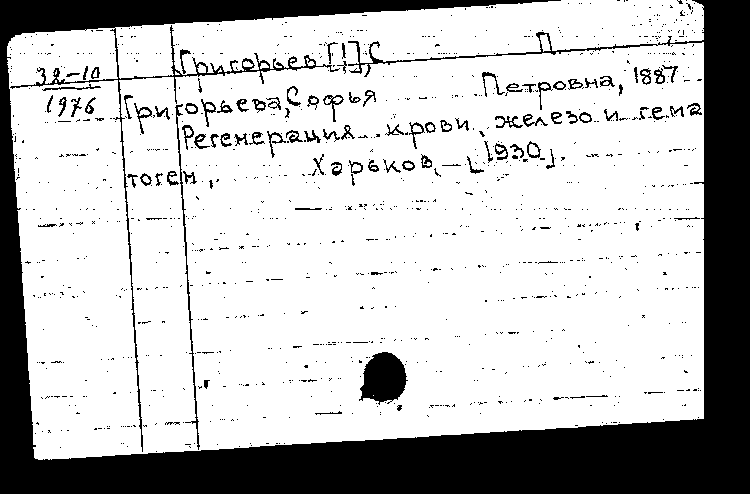 Григорьев [!], С П
32-10
1976
Григорьева, Софья Петровна, 1887
Регенерация крови, железо и гема
тоген,. Харьков, – [1930].